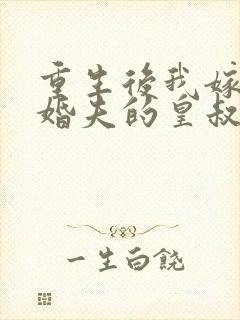 重生後我嫁
婚夫的皇叔
一生白饒